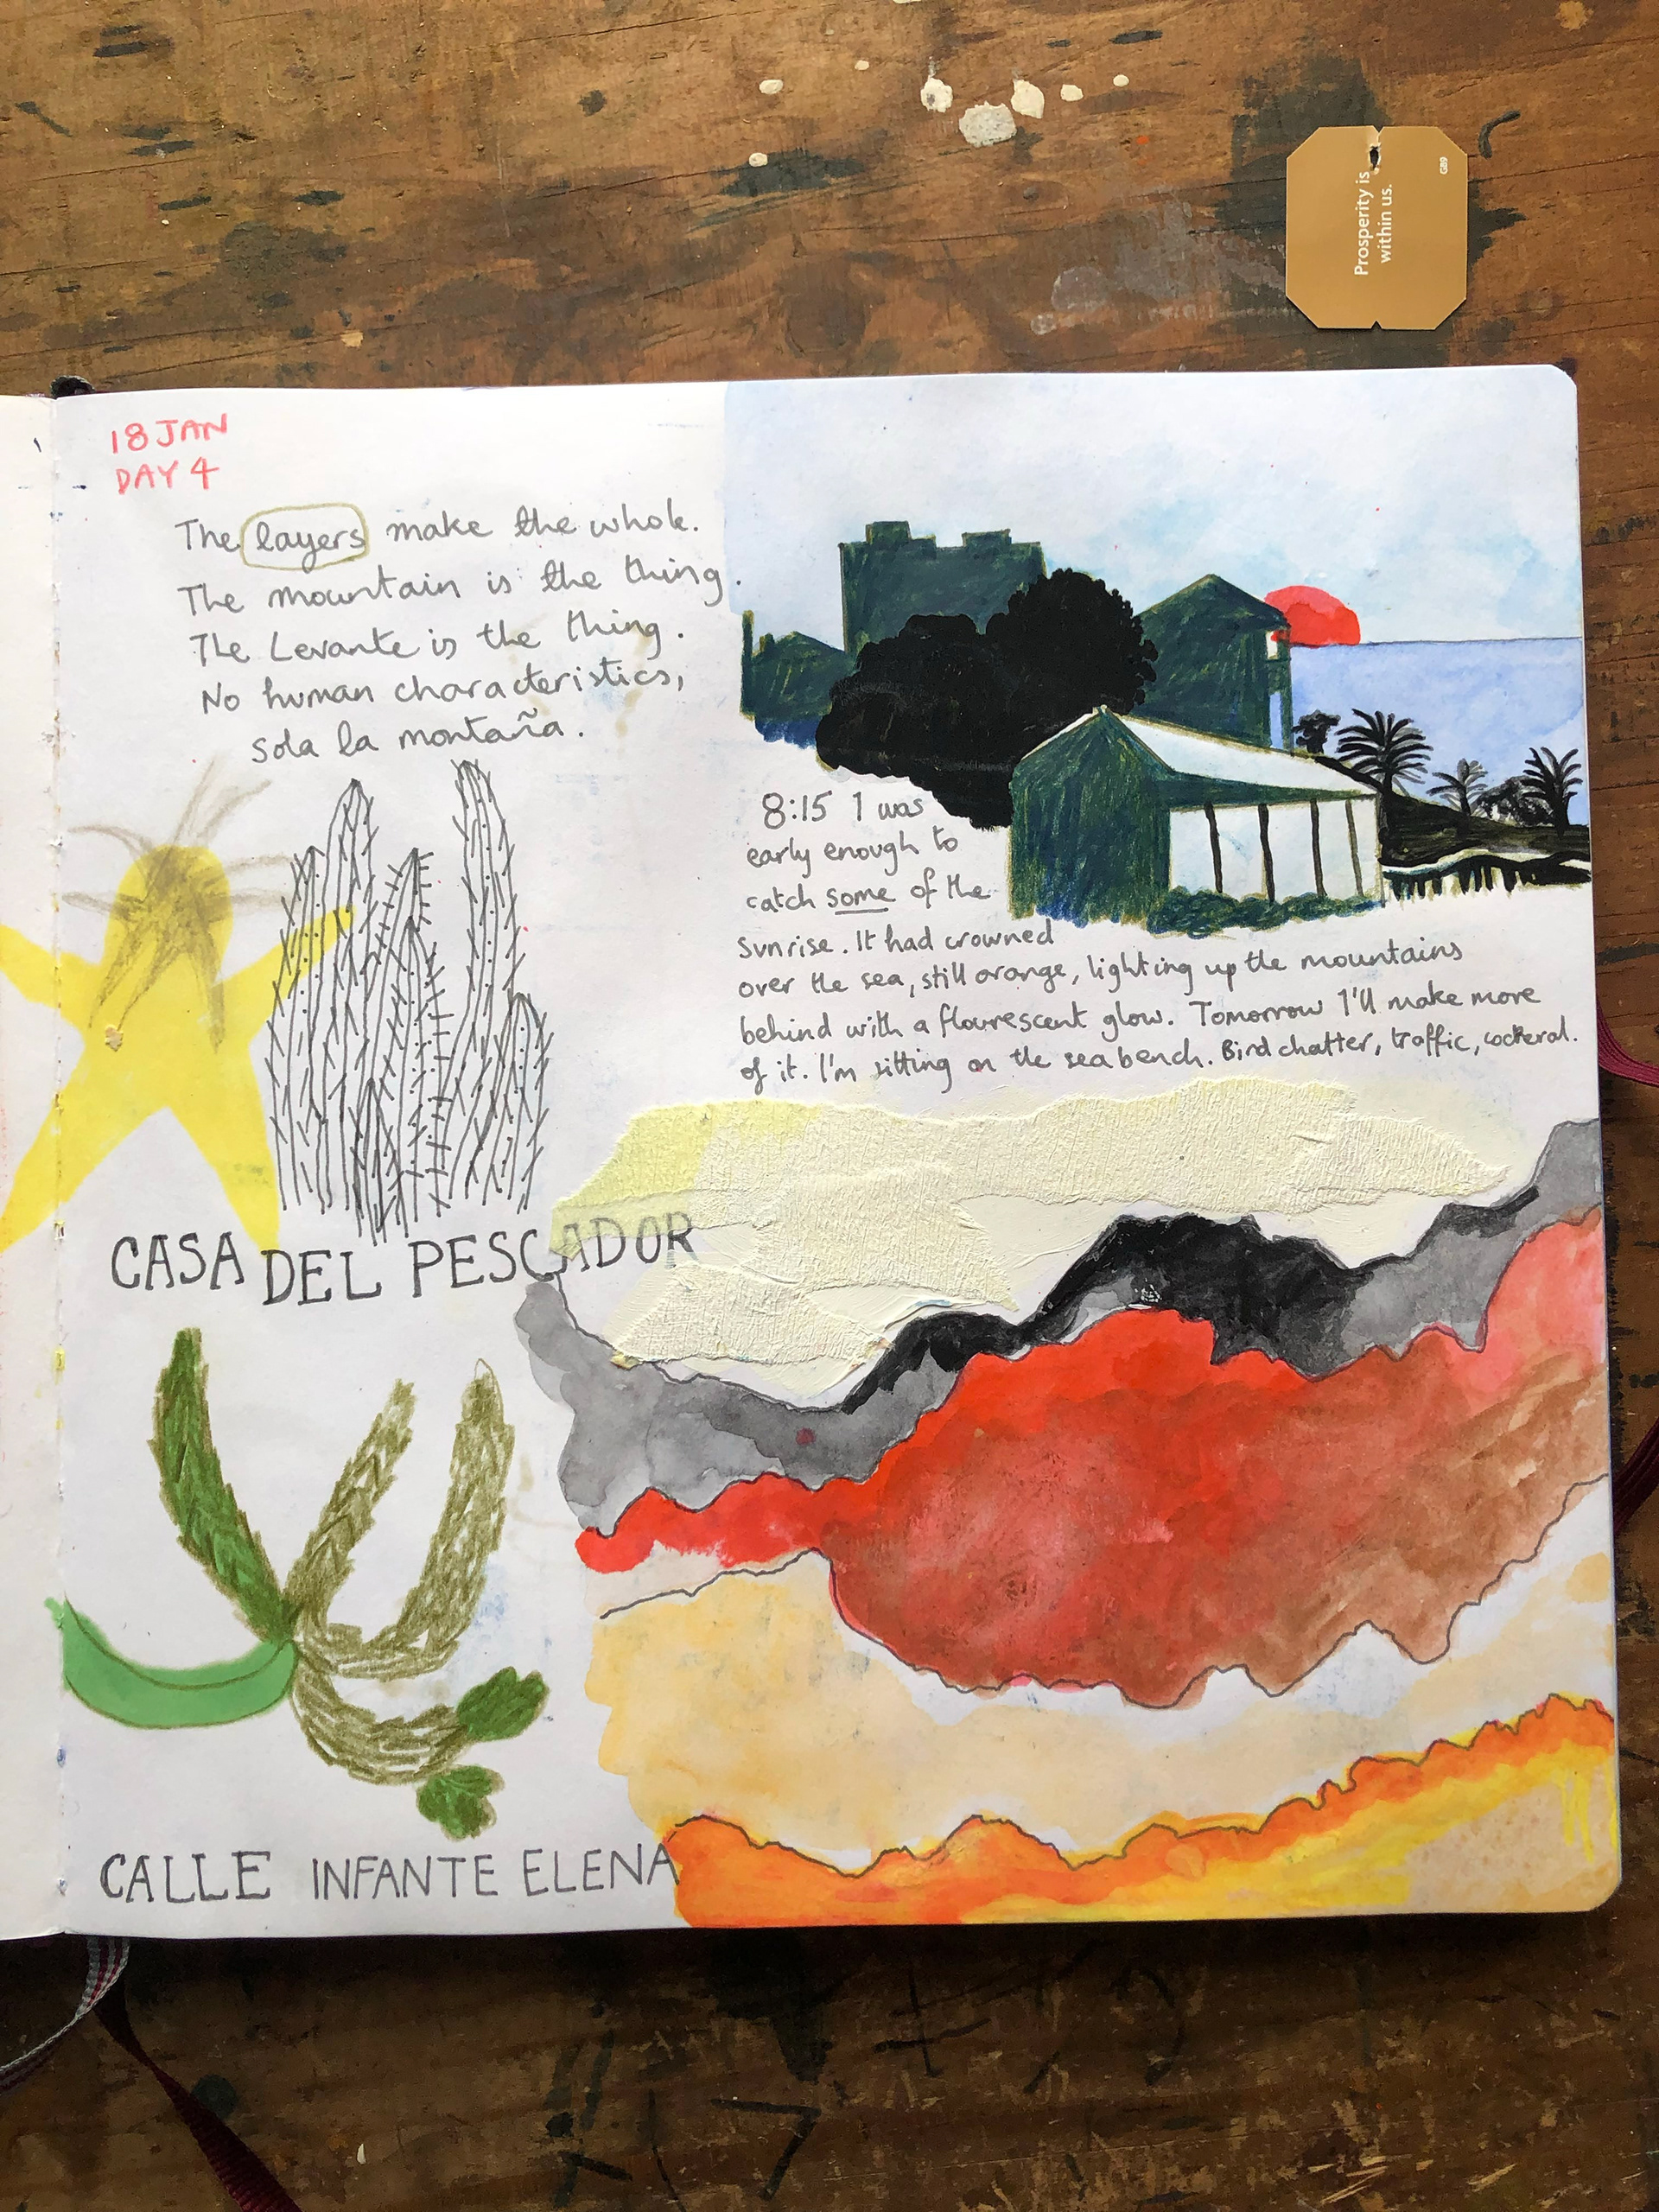 Prosperity is
within us.
G89
18 JAN
DAY 4
The layers make the whole.
The mountain is the thing.
The Levante is the thing.
No human characteristics,
sola la montaña.
8:15 I was
early enough to
catch some of the
sunrise. It had crowned
over the sea, still orange, lighting up the mountains
behind with a flourescent glow. Tomorrow I'll make more
of it. I'm sitting on the sea bench. Bird chatter, traffic, cockeral.
CASA DEL PESCADOR
CALLE INFANTE ELENA